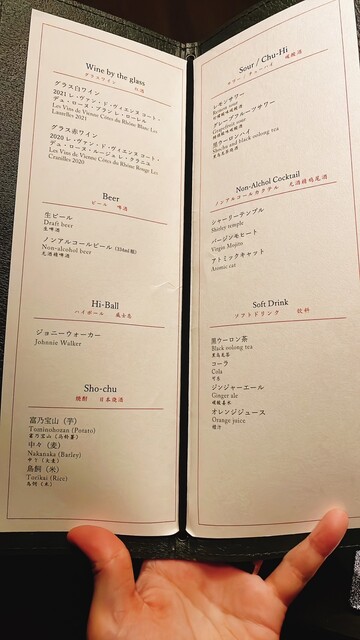 Wine by the glass
グラスワイン 红酒
グラス白ワイン
2021 レ・ヴァン・ド・ヴィエンヌ コート・
デュ・ローヌ・ブラン レ・ローレル
Les Vins de Vienne Côtes du Rhône Blanc Les
Laurelles 2021
グラス赤ワイン
2020 レ・ヴァン・ド・ヴィエンヌ コート・
デュ・ローヌ・ルージュ レ・クラニユ
Les Vins de Vienne Côtes du Rhône Rouge Les
Cranilles 2020
Beer
ビール 啤酒
生ビール
Draft beer
生啤酒
ノンアルコールビール (334ml瓶)
Non-alcohol beer
无酒精啤酒
Hi-Ball
ハイボール 威士忌
ジョニーウォーカー
Johnnie Walker
Sho-chu
焼酎 日本烧酒
富乃宝山 (芋)
Tominohozan (Potato)
富乃宝山 (马铃薯)
中々 (麦)
Nakanaka (Barley)
中々 (大麦)
鳥飼 (米)
Torikai (Rice)
鸟饲 (米)
Sour / Chu-Hi
サワー / チューハイ 碳酸酒
レモンサワー
Lemon sour
グレープフルーツサワー
Grapefruit sour
黒ウーロンハイ
Shochu and black oolong tea
Non-Alchol Cocktail
ノンアルコールカクテル 无酒精鸡尾酒
シャーリーテンプル
Shirley temple
バージンモヒート
Virgin Mojito
アトミックキャット
Atomic cat
Soft Drink
ソフトドリンク 饮料
黒ウーロン茶
Black oolong tea
黑乌龙茶
コーラ
Cola
可乐
ジンジャーエール
Ginger ale
碳酸姜水
オレンジジュース
Orange juice
橙汁